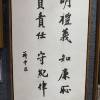 明禮義知廉恥
負責任守紀律
蔣中正